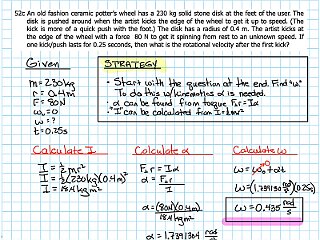 52c An old fashion ceramic potter's wheel has a 230 kg solid stone disk at the feet of the user. The
disk is pushed around when the artist kicks the edge of the wheel to get it up to speed. (The
kick is more of a quick push with the foot.) The disk has a radius of 0.4 m. The artist kicks at
the edge of the wheel with a force 80 N to get it spinning from rest to an unknown speed. If
one kick/push lasts for 0.25 seconds, then what is the rotational velocity after the first kick?
Given
m=230kg
r=0.4m
F=80N
ω₀=0
ω=?
t=0.25s
STRATEGY
• Start with the question at the end. Find "ω"
To do this w/kinematics α is needed.
• α can be found from torque F⊥r=Iα
• "I" can be calculated from I=½mr²
Calculate I
I=½mr²
I=½(230kg)(0.4m)²
I=18.4kgm²
Calculate α
F⊥r=Iα
α=F⊥r/I
α=(80N)(0.4m)/18.4kgm²
α=1.7391304 rad/s
Calculate ω
ω=ω₀+αt
ω=(1.739130 rad/s²)(0.25s)
ω=0.435 rad/s